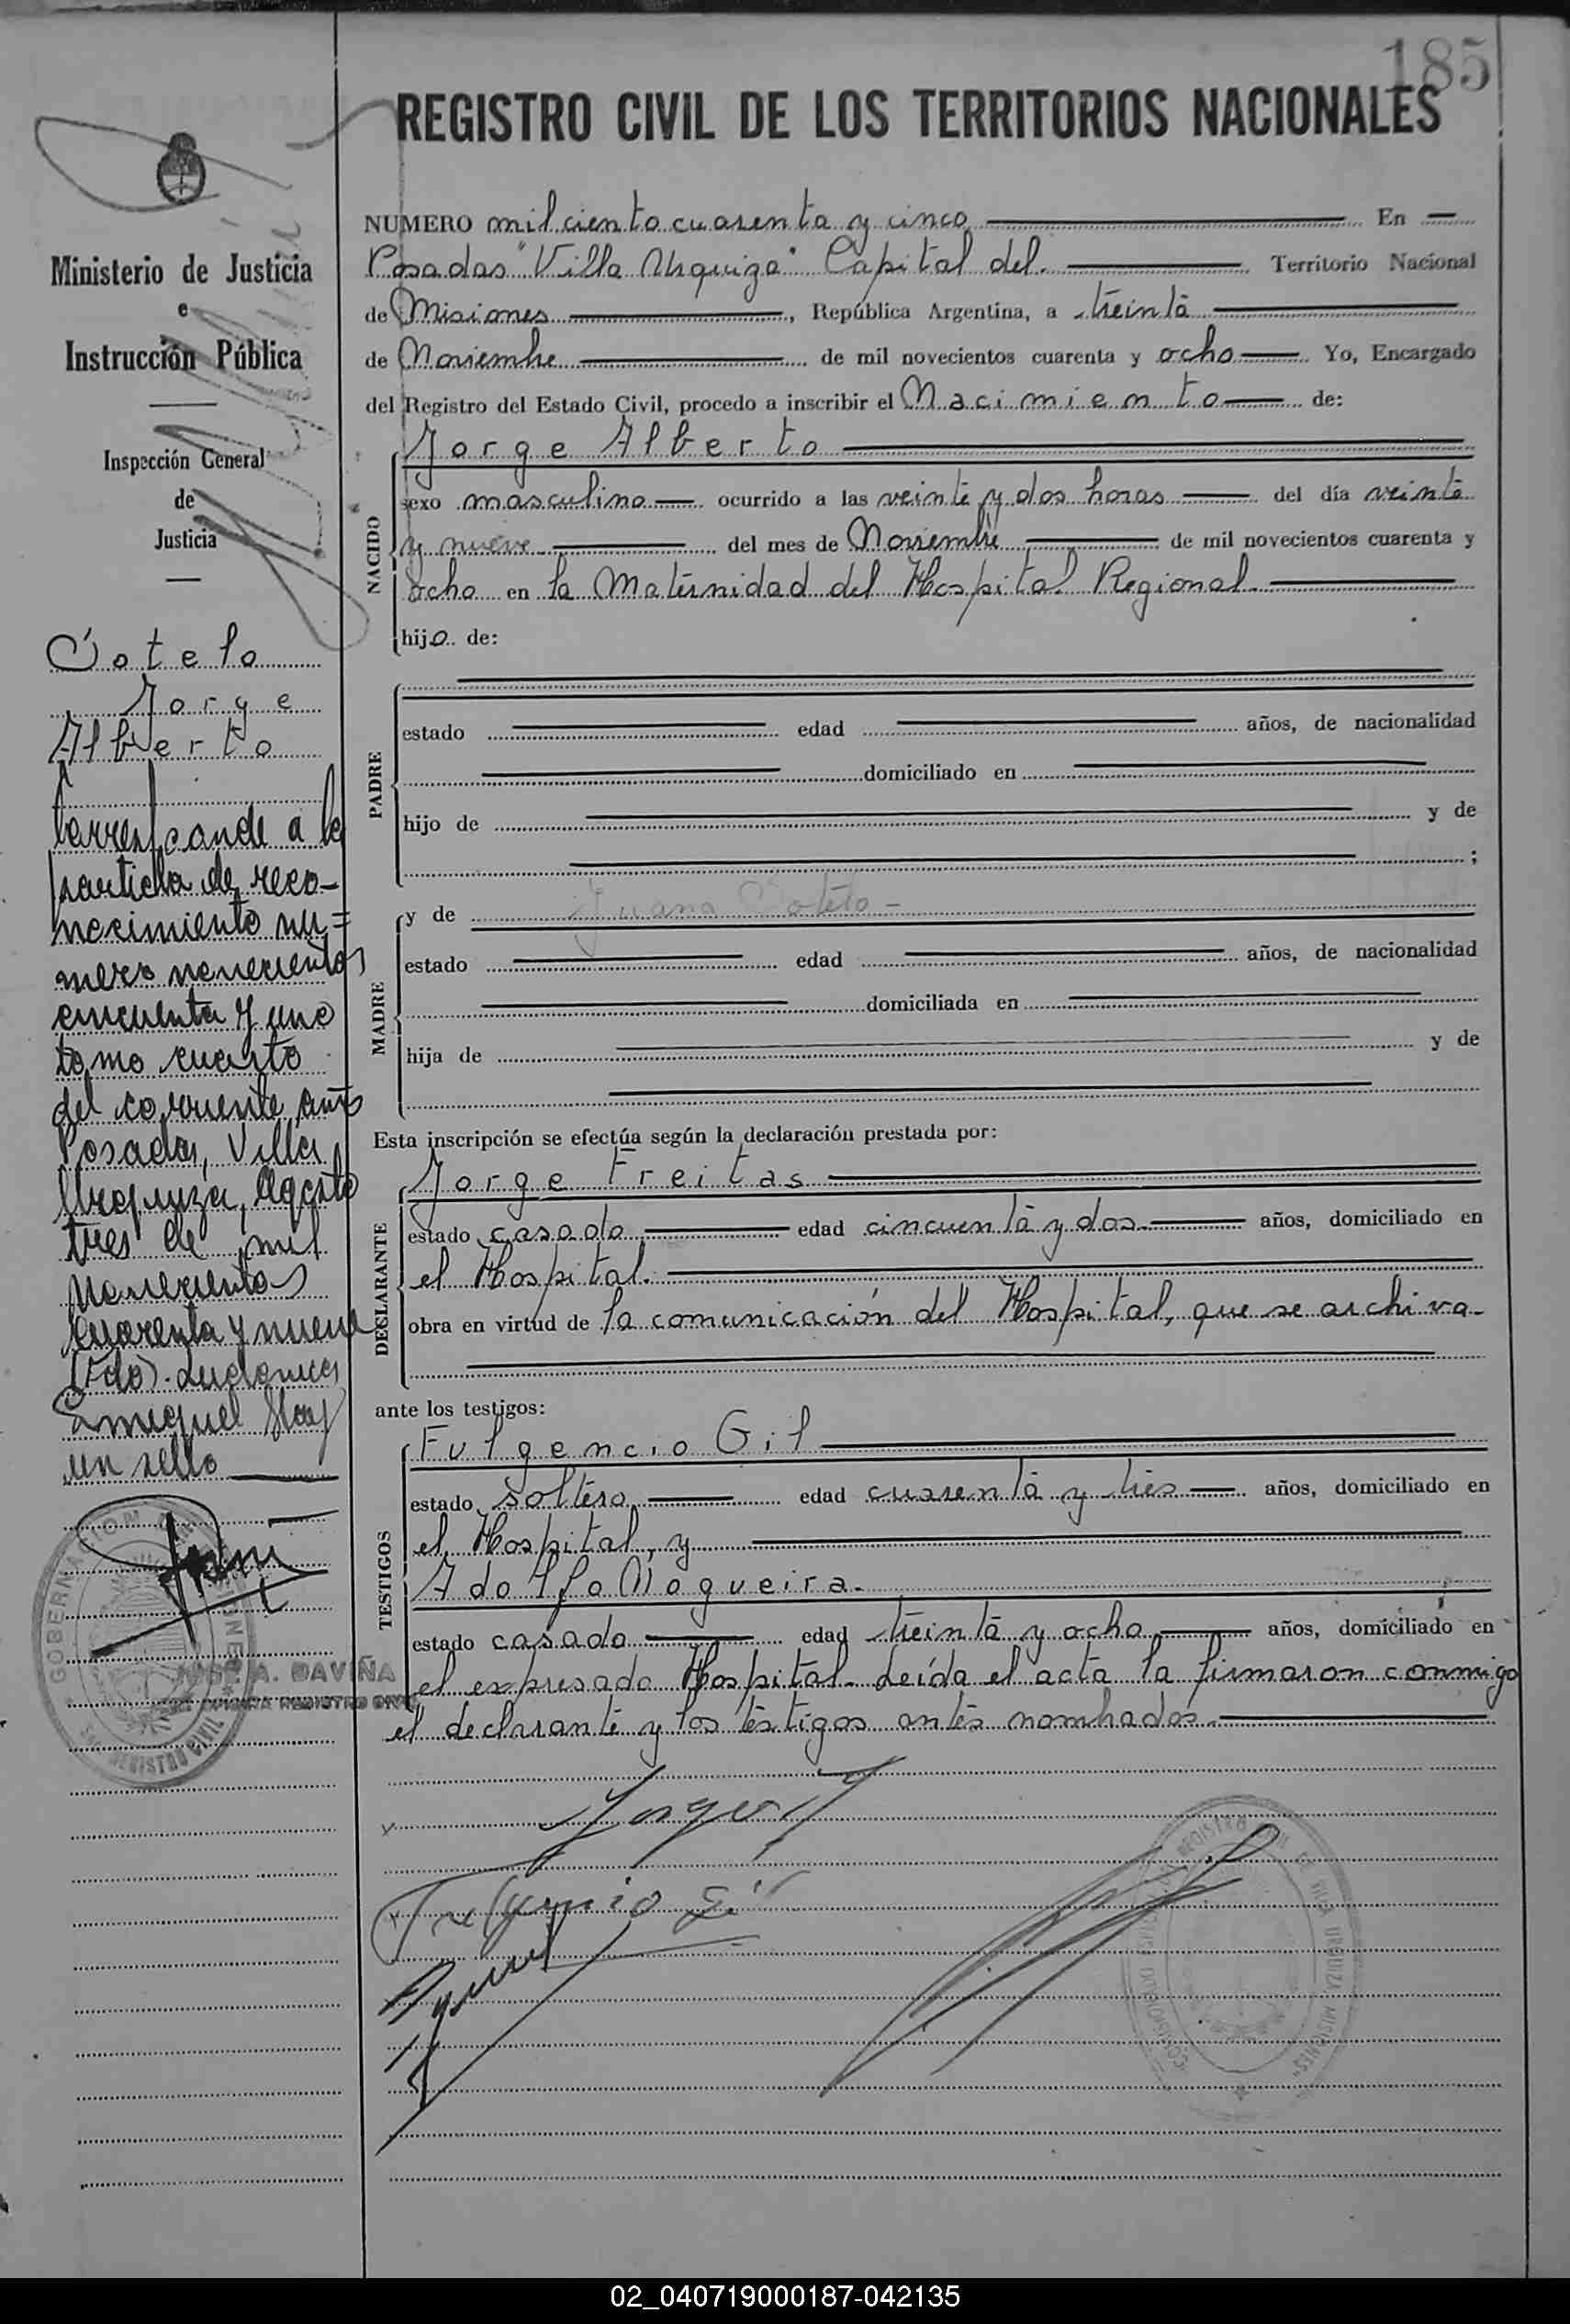 185
REGISTRO CIVIL DE LOS TERRITORIOS NACIONALES
Ministerio de Justicia
e
Instrucción Pública
Inspección General
de
Justicia
Cotelo
Jorge
Alberto
Corresponde a la
partida de reco-
nocimiento nu=
mero novecientos
cincuenta y uno
tomo cuarto
del corriente año
Posadas, Villa
Urquiza, Agosto
tres de mil
novecientos
cuarenta y nueve
(Fdo).
un sello
GOBERNACION
REGISTRO CIVIL
A. DAVIÑA
NUMERO mil ciento cuarenta y cinco En
Posadas "Villa Urquiza" Capital del Territorio Nacional
de Misiones, República Argentina, a treinta
de Noviembre de mil novecientos cuarenta y ocho Yo, Encargado
del Registro del Estado Civil, procedo a inscribir el Nacimiento de:
NACIDO
Jorge Alberto
sexo masculino ocurrido a las veinte y dos horas del día veinte
y nueve del mes de Noviembre de mil novecientos cuarenta y
ocho en la Maternidad del Hospital Regional
hijo de:
PADRE
estado edad años, de nacionalidad
domiciliado en
hijo de y de
;
MADRE
y de Juana Cotelo -
estado edad años, de nacionalidad
domiciliada en
hija de y de
Esta inscripción se efectúa según la declaración prestada por:
DECLARANTE
Jorge Freitas
estado casado edad cincuenta y dos años, domiciliado en
el Hospital.
obra en virtud de la comunicación del Hospital, que se archiva-
ante los testigos:
TESTIGOS
Fulgencio Gil
estado soltero edad cuarenta y tres años, domiciliado en
el Hospital, y
Adolfo Nogueira.
estado casado edad treinta y ocho años, domiciliado en
el expresado Hospital. Leída el acta la firmaron conmigo
el declarante y los testigos antes nombrados.
Jorge F
Fulgencio Gil
REGISTRO CIVIL DE VILLA URQUIZA, MISIONES
02_040719000187-042135